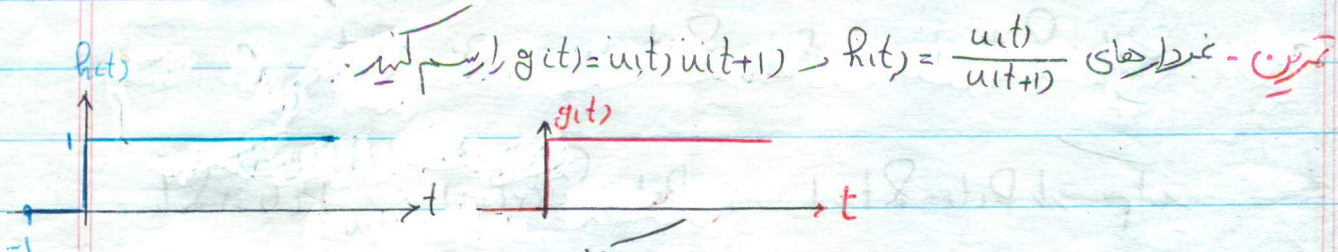 تمرین - نمودارهای h(t) = u(t) / u(t+1) و g(t) = u(t) u(t+1) را رسم کنید.
h(t)
g(t)
1
t
t
-1